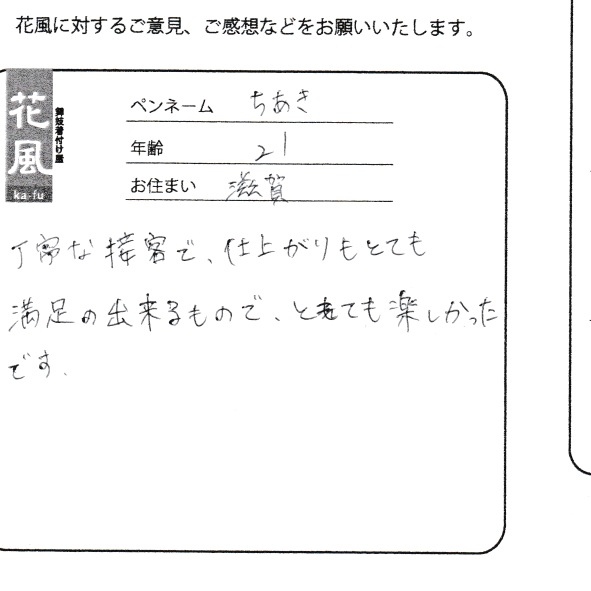 花風に対するご意見、ご感想などをお願いいたします。
花風
舞妓着付け屋
ka-fu
ペンネーム ちあき
年齢 21
お住まい 滋賀
丁寧な接客で、仕上がりもとても
満足の出来るもので、とても楽しかった
です.